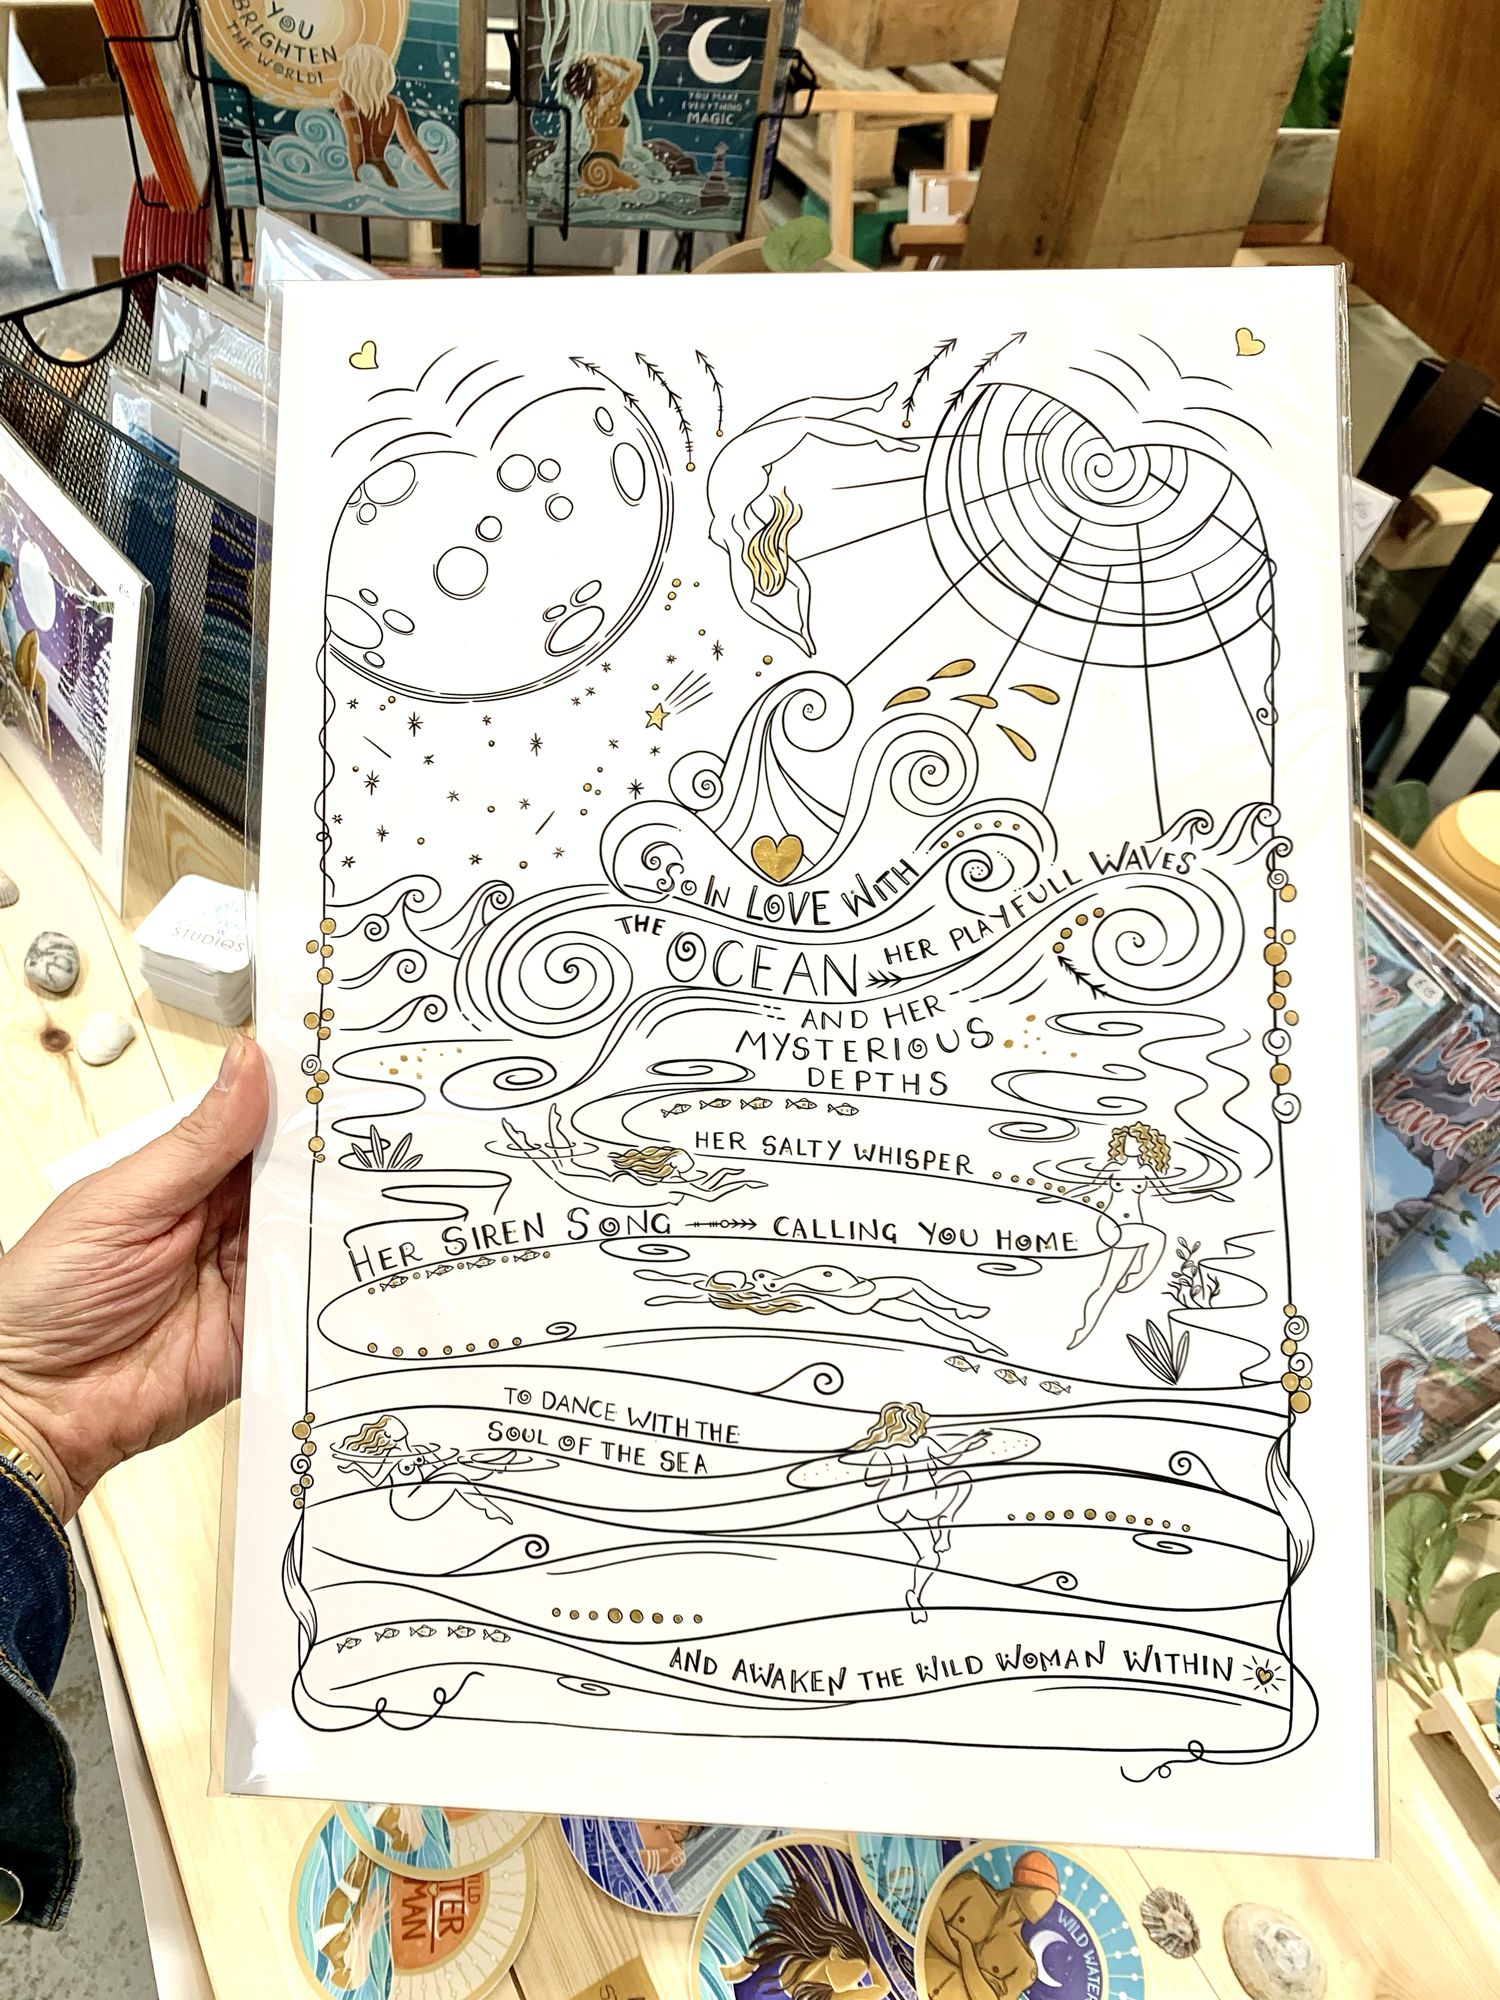 YOU
BRIGHTEN
THE WORLD!
YOU MAKE
EVERYTHING
MAGIC
SO IN LOVE WITH
THE OCEAN HER PLAYFULL WAVES
AND HER
MYSTERIOUS
DEPTHS
HER SALTY WHISPER
HER SIREN SONG CALLING YOU HOME
TO DANCE WITH THE
SOUL OF THE SEA
AND AWAKEN THE WILD WOMAN WITHIN
STUDIOS
WILD WATER